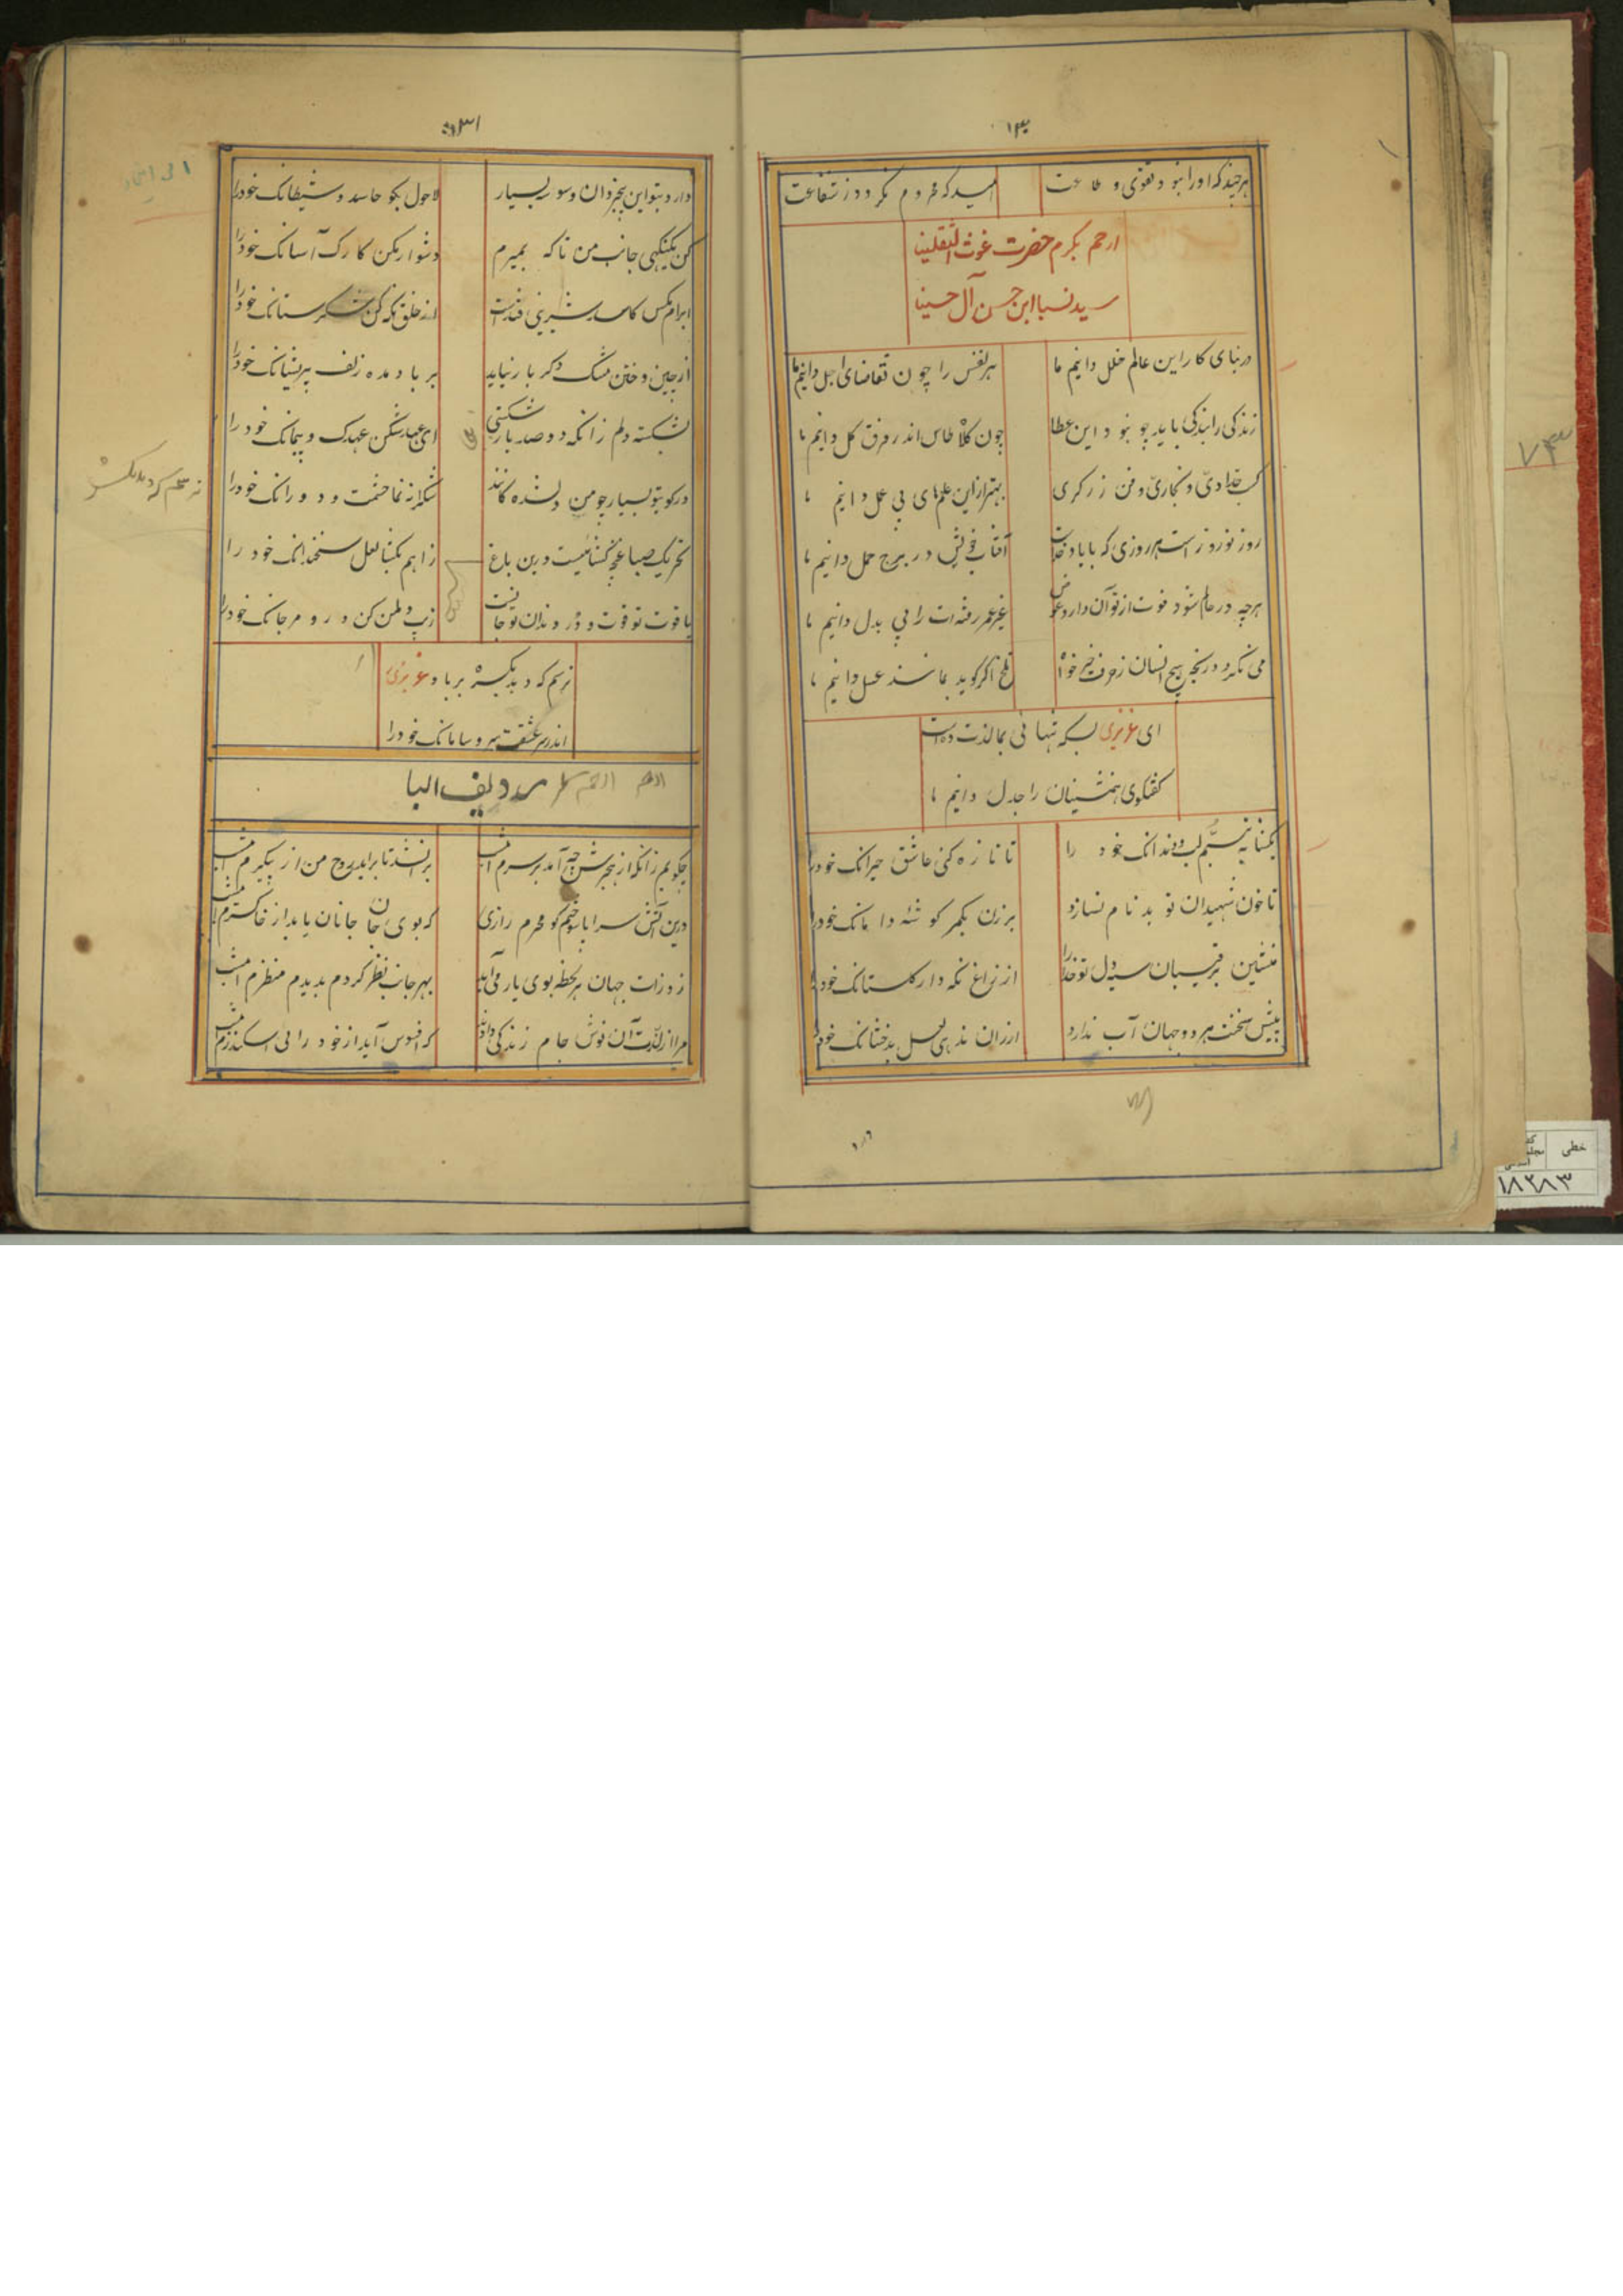 ۱۳۰
هر چند که او را نبود تقوی و طاعت
امید که محروم نگردد ز شفاعت
ارحم بکرم حضرت غوث الثقلینا
سید نسبا ابن حسن آل حسینا
در بنای کار این عالم خلل دانیم ما
هر نفس را چون تقاضای اجل دانیم ما
زندگی را بندگی باید چو نبود این عطا
چون کلاه طاس اندر فرق کل دانیم ما
کسب حدادی و نجاری و فن زرگری
بهتر از این علمهای بی عمل دانیم ما
روز نوروز است هر روزی که با یاد خداست
آفتاب خویش در برج حمل دانیم ما
هر چه در عالم شود فوت از تو آن دارد عوض
غیر عمر رفته ات را بی بدل دانیم ما
می نگردد رنجه هیچ انسان ز حرف خیر خواه
تلخ اگر گوید بما شند عسل دانیم ما
ای عزیزی بسکه تنهائی بما لذت ده است
گفتگوی همنشینان را جدل دانیم ما
بگشا به تبسم لب و دندانک خود را
تا تازه کنی عاشق حیرانک خود را
تا خون شهیدان تو بدنام نسازد
بر زن بکمر گوشهٔ دامانک خود را
منشین برقیبان سیه دل تو خدا را
از زاغ نگه دار گلستانک خود را
پیش سخنت هر دو جهان آب ندارد
ارزان ندهی لعل بدخشانک خود را
۱۳۱
دارد بتو این بیخردان وسوسه بسیار
لاحول بگو حاسد و شیطانک خود را
کن یکنگهی جانب من تا که بمیرم
دشوار مکن کارک آسانک خود را
ابرام مگس کاسد شیرینی قند است
از خلق نگه کن شکرستانک خود را
از چین و ختن مشک دگر بار نیاید
بر باد مده زلف پریشانک خود را
بشکسته دلم زانکه دو صد بار شکستی
ای عهد شکن عهدک و پیمانک خود را
در کوی تو بسیار چو من دلشده گانند
شکرانه نما حشمت و دورانک خود را
تحریک صبا غنچه گشا نیست درین باغ
زاهم بگشا لعل سخندانک خود را
یاقوت تو قوت و در دندان تو جانست
زیب دهن کن در و مرجانک خود را
ترسم که دهد یکسره بر باد عزیزی
اندر سر عشقت سر و سامانک خود را
ردیف البا
چگویم زانکه از هجرش چه آمد بر سرم امشب
بر نشد تا بر آید روح من از پیکرم امشب
درین آتش سراپا سوختم کو محرم رازی
که بوی جان جانان یابد از خاکسترم امشب
ز ذرات جهان هر لحظه بوی یار می آید
بهر جانب نظر کردم بدیدم منظرم امشب
مرا از لذت آن نوش جام زندگی دادند
که افسوس آید از خود رائی اسکندرم امشب
ترسم که دهد یکسر
۷۳
خطی
۱۸۲۸۳